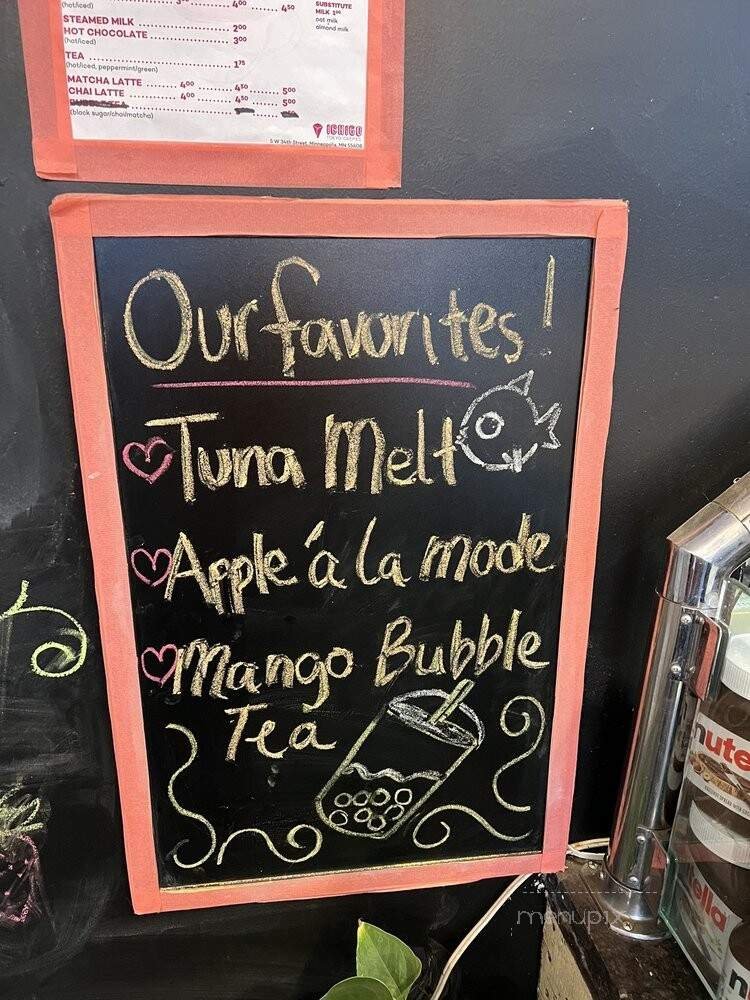 (hot/iced) 400 450
STEAMED MILK 200
HOT CHOCOLATE 300
TEA 175
(hot/iced, peppermint/green)
MATCHA LATTE 400 450 500
CHAI LATTE 400 450 500
BUBBLE TEA
(black sugar/chai/matcha)
SUBSTITUTE
MILK 100
oat milk
almond milk
ICHIGO
TOKYO CREPES
5 W 34th Street, Minneapolis, MN 55408
Our favorites!
Tuna Melt
Apple 'a la mode
Mango Bubble
Tea
nute
ella
menupix